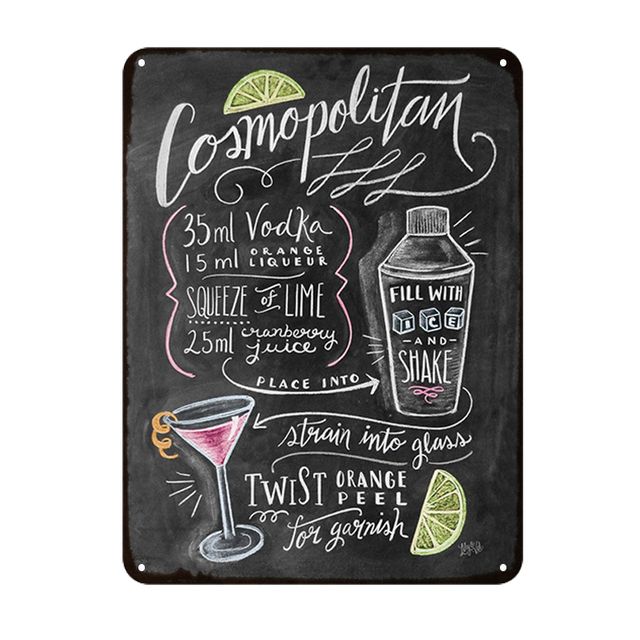 Cosmopolitan
35ml Vodka
15ml ORANGE LIQUEUR
SQUEEZE of LIME
25ml cranberry juice
PLACE INTO
FILL WITH
ICE
-AND-
SHAKE
strain into glass
TWIST ORANGE PEEL
for garnish